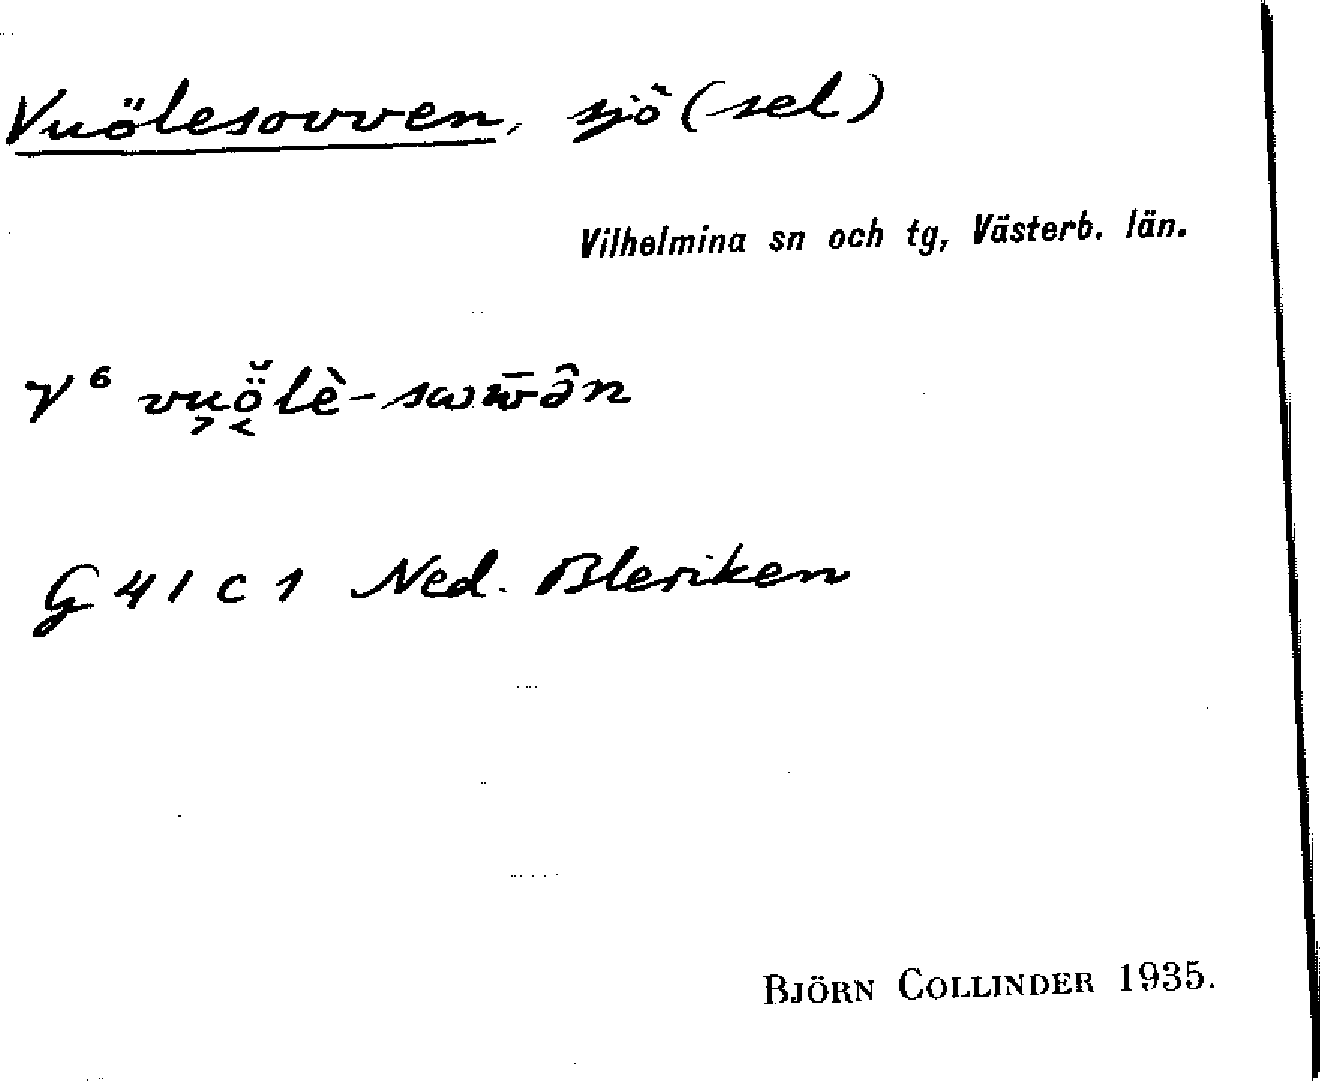 Vuölesovven, sjö (sel)
Vilhelmina sn och tg, Västerb. län.
V⁶ vu͕ö̬̆lè-sωw̄ə̂n
G 41 c 1 Ned. Bleriken
BJÖRN COLLINDER 1935.